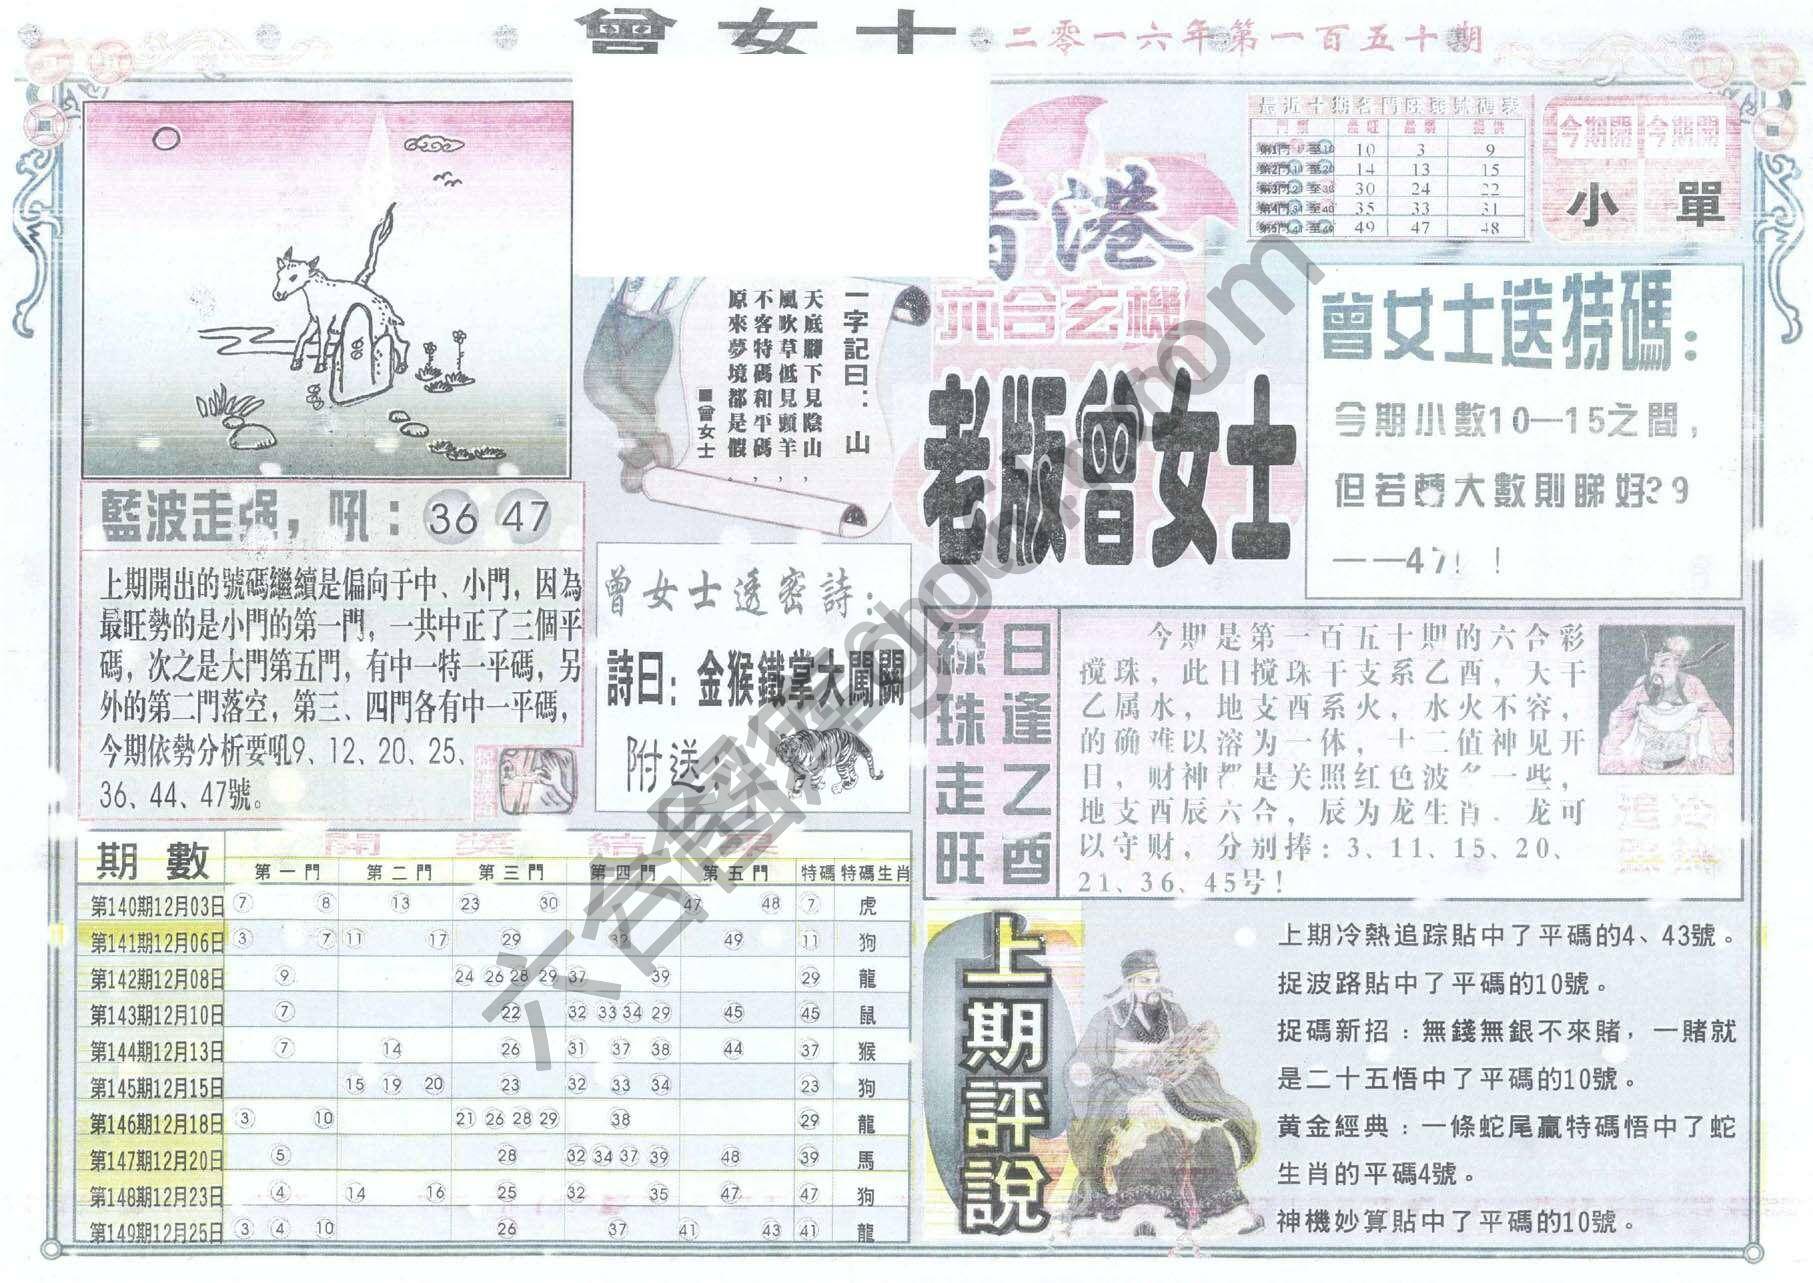 曾女士
二零一六年第一百五十期
最近十期各門旺弱號碼表
第1門 1至10 10 3 9
第2門 11至20 14 13 15
第3門 21至30 30 24 22
第4門 31至40 35 33 31
第5門 41至49 49 47 48
今期開 今期開
小 單
香港
六合玄機
老版曾女士
一字記曰：山
天底腳下見陰山，
風吹草低見頭羊，
不客特碼和平碼，
原來夢境都是假。
■曾女士
曾女士送特碼：
今期小數10—15之間，
但若轉大數則睇好39
——47！！
藍波走强，吼：36 47
上期開出的號碼繼續是偏向于中、小門，因為
最旺勢的是小門的第一門，一共中正了三個平
碼，次之是大門第五門，有中一特一平碼，另
外的第二門落空，第三、四門各有中一平碼，
今期依勢分析要吼9、12、20、25、
36、44、47號。
曾女士透密詩：
詩曰：金猴鐵掌大闖關
附送：
日逢乙酉
綠珠走旺
今期是第一百五十期的六合彩
搅珠，此日搅珠干支系乙酉，天干
乙属水，地支酉系火，水火不容，
的确难以溶为一体，十二值神见开
日，财神都是关照红色波多一些，
地支酉辰六合，辰为龙生肖，龙可
以守财，分别捧：3、11、15、20、
21、36、45号！
期數 開獎結果
第一門 第二門 第三門 第四門 第五門 特碼 特碼生肖
第140期12月03日 7 8 13 23 30 47 48 7 虎
第141期12月06日 3 7 11 17 29 32 49 11 狗
第142期12月08日 9 24 26 28 29 37 39 29 龍
第143期12月10日 7 22 32 33 34 29 45 45 鼠
第144期12月13日 7 14 26 31 37 38 44 37 猴
第145期12月15日 15 19 20 23 32 33 34 23 狗
第146期12月18日 3 10 21 26 28 29 38 29 龍
第147期12月20日 5 28 32 34 37 39 48 39 馬
第148期12月23日 4 14 16 25 32 35 47 47 狗
第149期12月25日 3 4 10 26 37 41 43 41 龍
上期評說
上期冷熱追踪貼中了平碼的4、43號。
捉波路貼中了平碼的10號。
捉碼新招：無錢無銀不來賭，一賭就
是二十五悟中了平碼的10號。
黄金經典：一條蛇尾贏特碼悟中了蛇
生肖的平碼4號。
神機妙算貼中了平碼的10號。